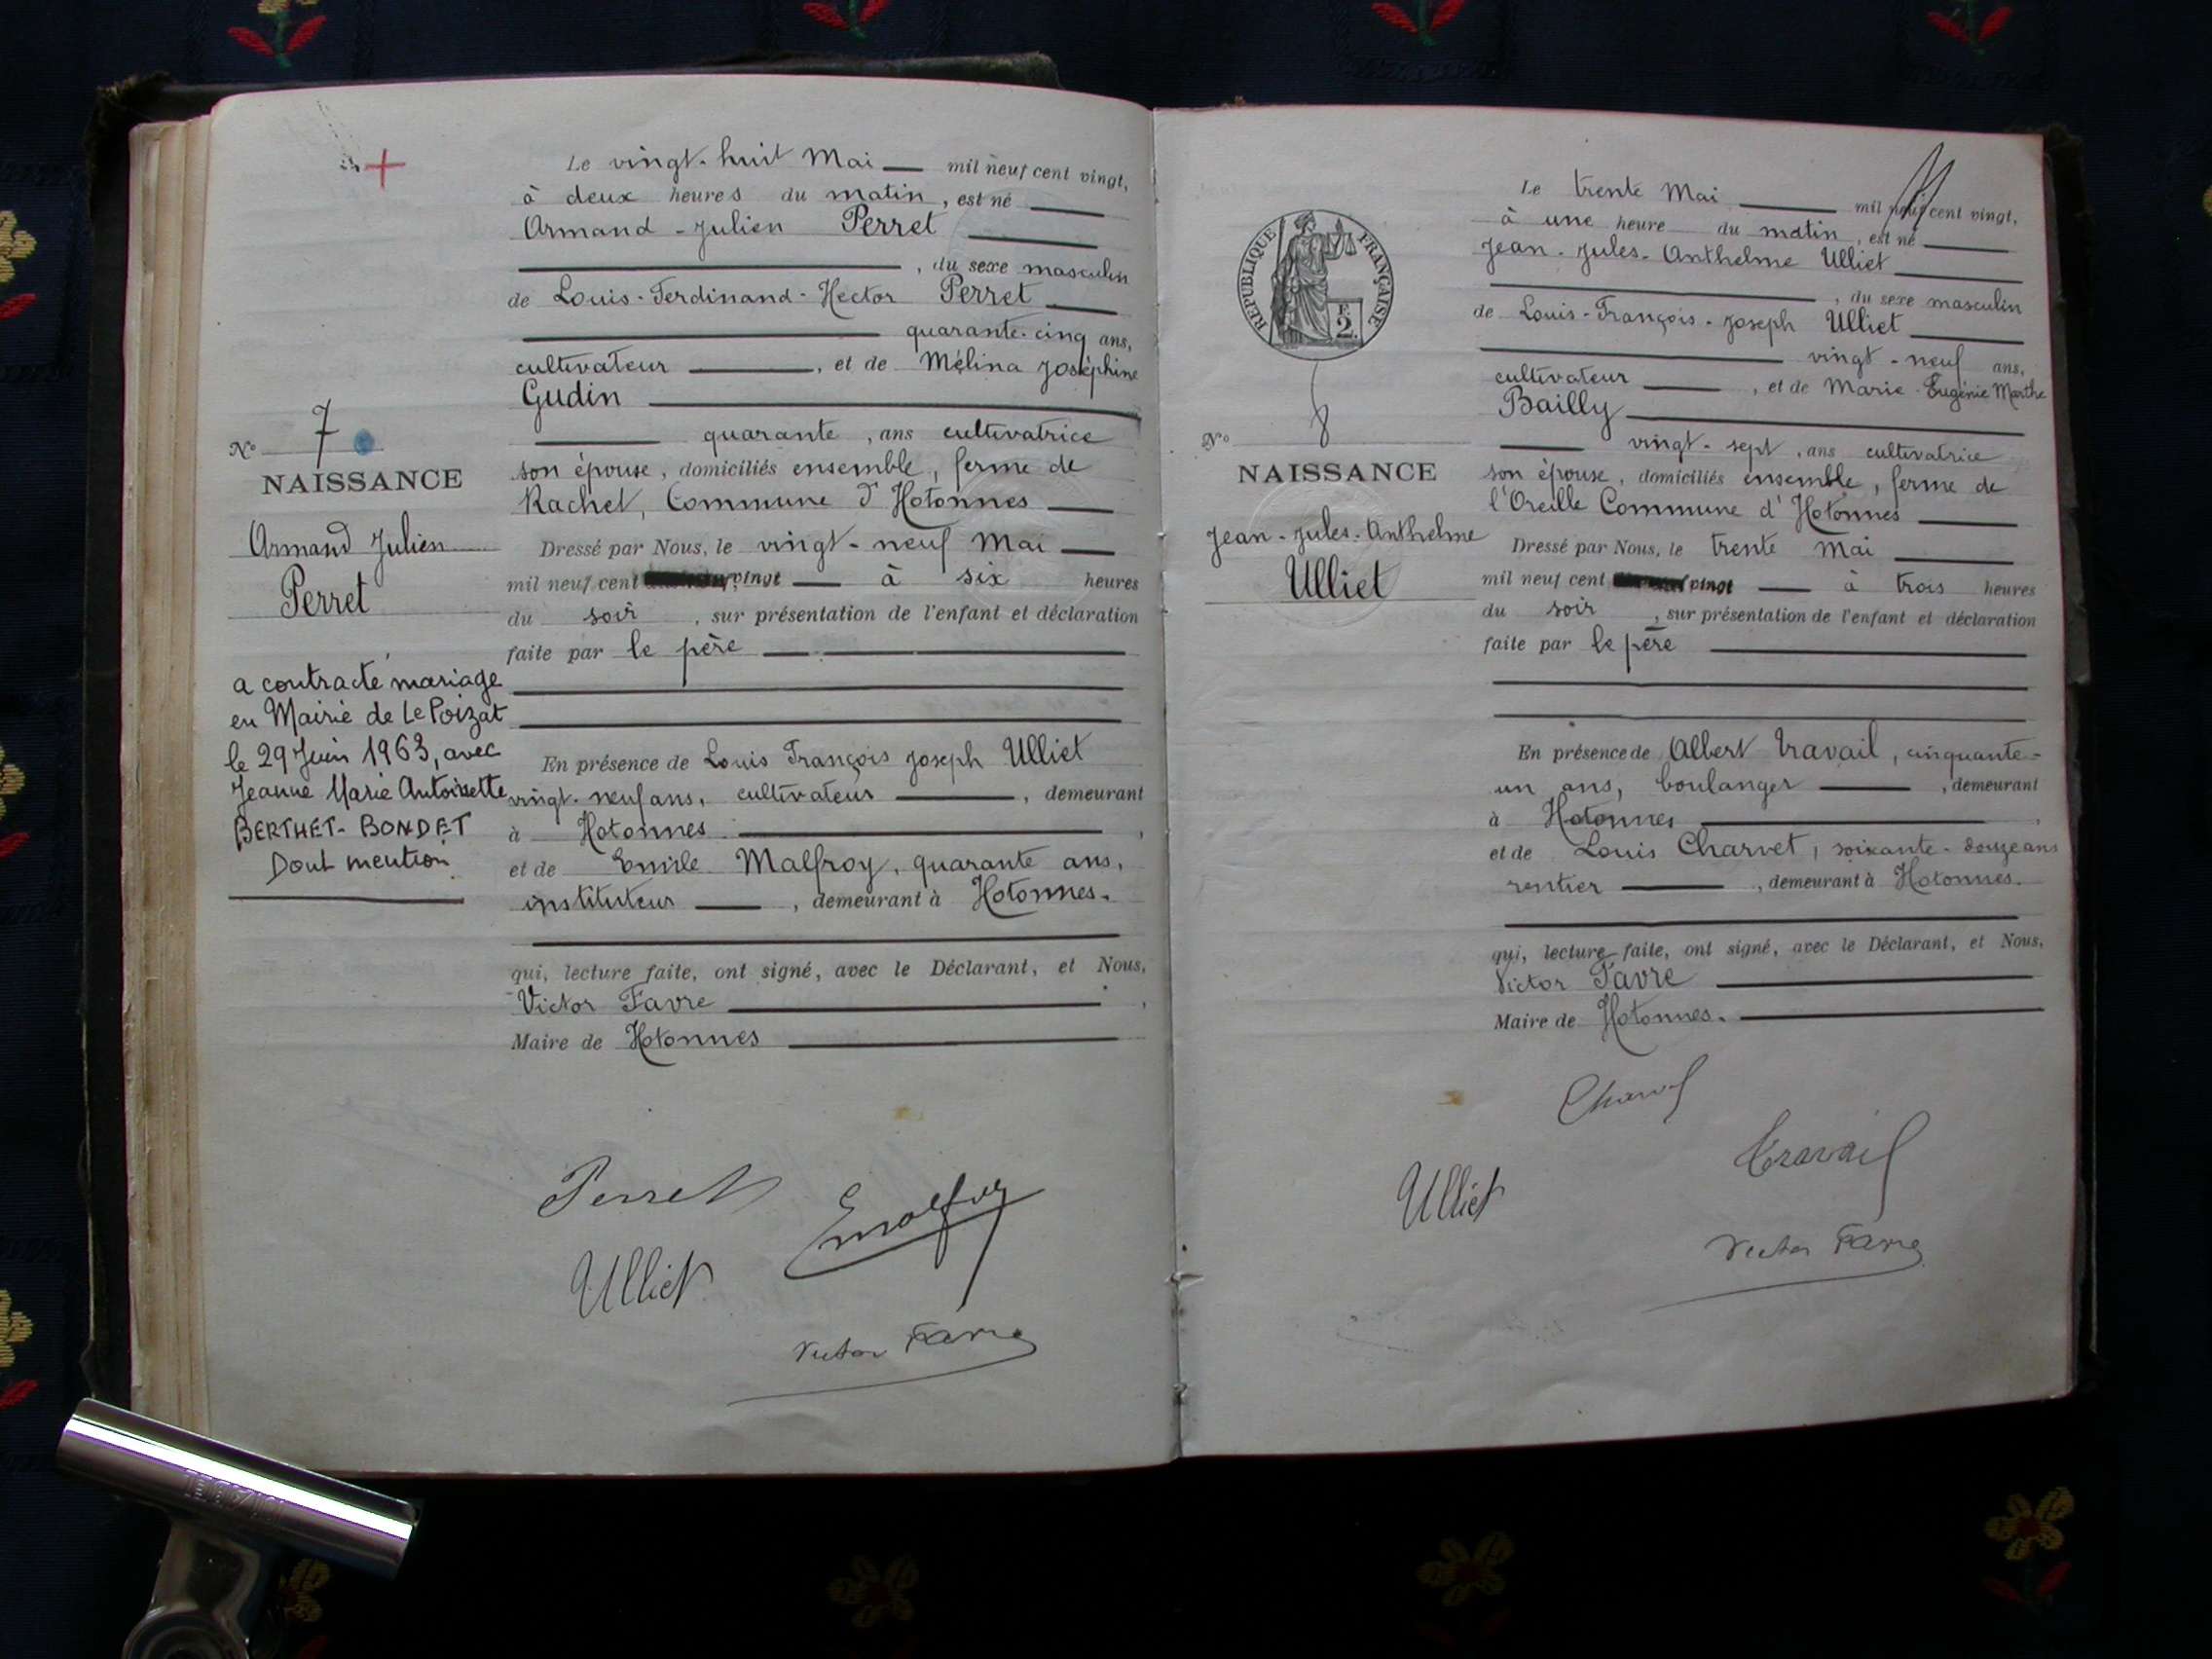 Le vingt-huit Mai mil neuf cent vingt,
à deux heures du matin, est né
Armand-Julien Perret
, du sexe masculin
de Louis-Ferdinand-Hector Perret
quarante-cinq ans,
cultivateur, et de Mélina Joséphine
Gudin
quarante, ans cultivatrice
son épouse, domiciliés ensemble, ferme de
Rachet, Commune d'Hotonnes
Dressé par Nous, le vingt-neuf Mai
mil neuf cent vingt à six heures
du soir, sur présentation de l'enfant et déclaration
faite par le père
En présence de Louis François Joseph Ulliet
vingt-neuf ans, cultivateur, demeurant
à Hotonnes,
et de Emile Malfroy, quarante ans,
instituteur, demeurant à Hotonnes.
qui, lecture faite, ont signé, avec le Déclarant, et Nous,
Victor Favre,
Maire de Hotonnes
N° 7
NAISSANCE
Armand Julien
Perret
a contracté mariage
en Mairie de Le Poizat
le 29 Juin 1963, avec
Jeanne Marie Antoinette
BERTHET-BONDET
Dont mention
Perret
EMalfroy
Ulliet
Victor Favre
Le trente Mai mil neuf cent vingt,
à une heure du matin, est né
Jean-Jules-Anthelme Ulliet
, du sexe masculin
de Louis-François-Joseph Ulliet
vingt-neuf ans,
cultivateur, et de Marie-Eugénie Marthe
Bailly
vingt-sept, ans cultivatrice
son épouse, domiciliés ensemble, ferme de
l'Oreille Commune d'Hotonnes
Dressé par Nous, le trente Mai
mil neuf cent vingt à trois heures
du soir, sur présentation de l'enfant et déclaration
faite par le père
En présence de Albert Travail, cinquante-
un ans, boulanger, demeurant
à Hotonnes,
et de Louis Charvet, soixante-douze ans
rentier, demeurant à Hotonnes.
qui, lecture faite, ont signé, avec le Déclarant, et Nous,
Victor Favre
Maire de Hotonnes.
RÉPUBLIQUE FRANÇAISE
F. 2
N° 8
NAISSANCE
Jean-Jules-Anthelme
Ulliet
Charvet
Travail
Ulliet
Victor Favre